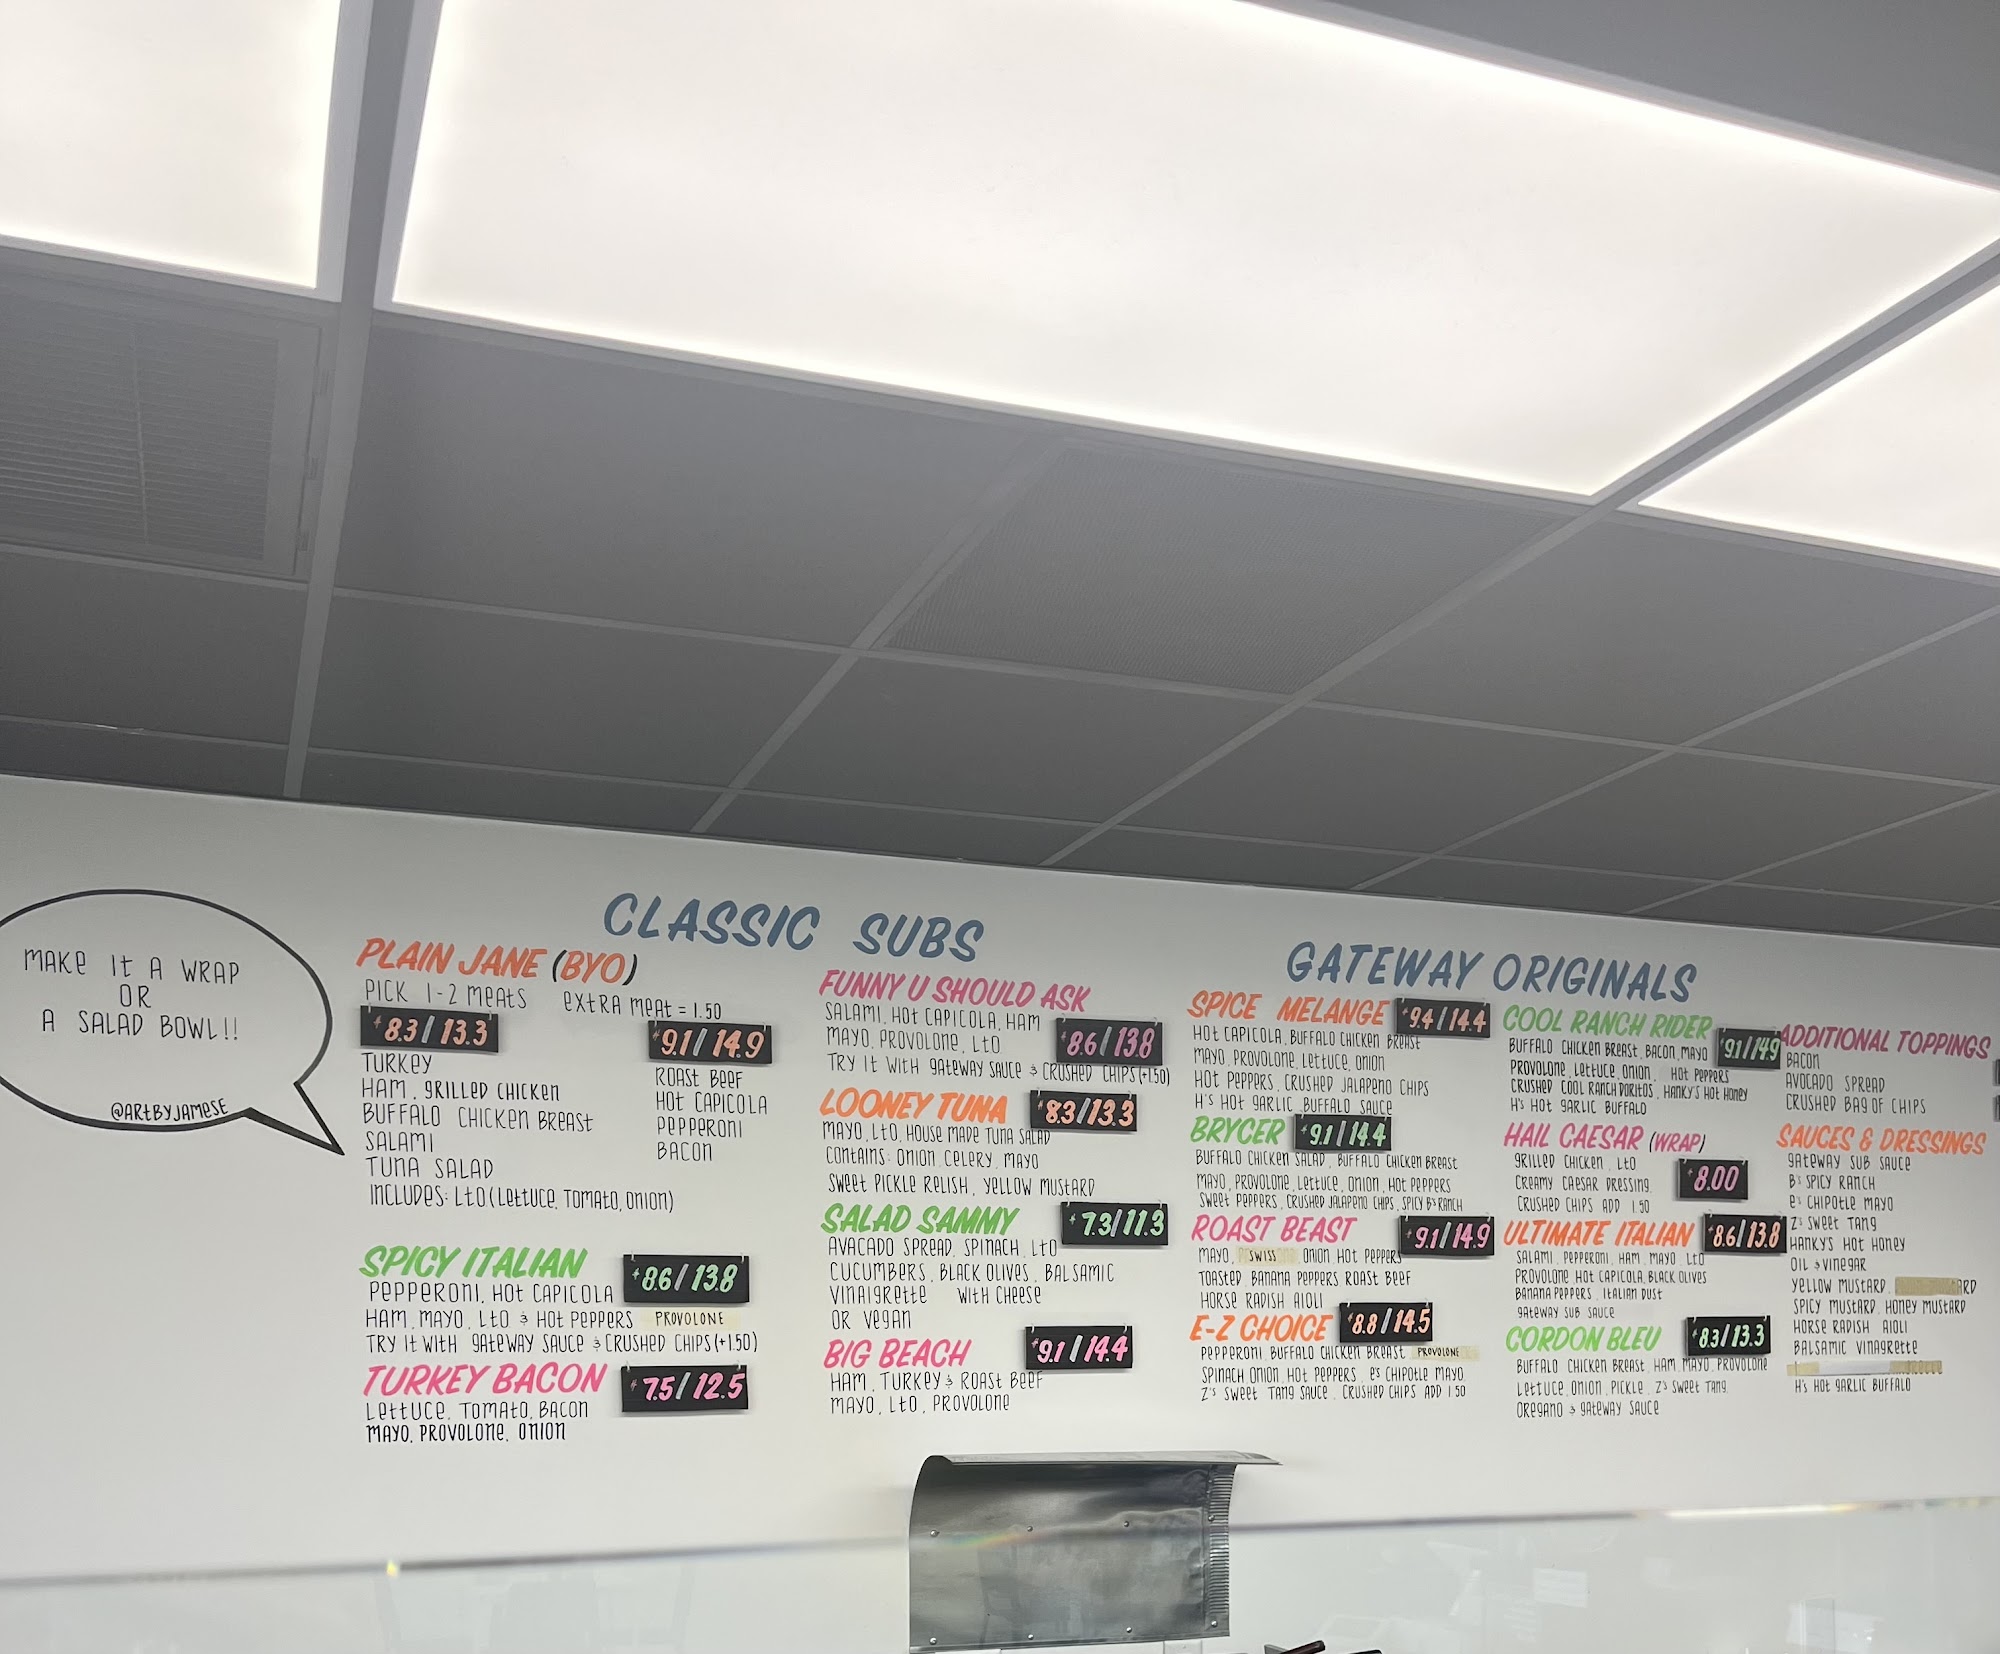 MAKE IT A WRAP
OR
A SALAD BOWL!!
@ARTBYJAMESE
CLASSIC SUBS
PLAIN JANE (BYO)
PICK 1-2 MEATS EXTRA MEAT = 1.50
8.3 / 13.3
TURKEY
HAM, GRILLED CHICKEN
BUFFALO CHICKEN BREAST
SALAMI
TUNA SALAD
INCLUDES: LTO (LETTUCE, TOMATO, ONION)
9.1 / 14.9
ROAST BEEF
HOT CAPICOLA
PEPPERONI
BACON
SPICY ITALIAN
8.6 / 13.8
PEPPERONI, HOT CAPICOLA
HAM, MAYO, LTO & HOT PEPPERS PROVOLONE
TRY IT WITH GATEWAY SAUCE & CRUSHED CHIPS (+1.50)
TURKEY BACON
7.5 / 12.5
LETTUCE, TOMATO, BACON
MAYO, PROVOLONE, ONION
FUNNY U SHOULD ASK
SALAMI, HOT CAPICOLA, HAM
MAYO, PROVOLONE, LTO
8.6 / 13.8
TRY IT WITH GATEWAY SAUCE & CRUSHED CHIPS (+1.50)
LOONEY TUNA
8.3 / 13.3
MAYO, LTO, HOUSE MADE TUNA SALAD
CONTAINS: ONION, CELERY, MAYO
SWEET PICKLE RELISH, YELLOW MUSTARD
SALAD SAMMY
7.3 / 11.3
AVACADO SPREAD, SPINACH, LTO
CUCUMBERS, BLACK OLIVES, BALSAMIC
VINAIGRETTE WITH CHEESE
OR VEGAN
BIG BEACH
9.1 / 14.4
HAM, TURKEY & ROAST BEEF
MAYO, LTO, PROVOLONE
GATEWAY ORIGINALS
SPICE MELANGE
9.4 / 14.4
HOT CAPICOLA, BUFFALO CHICKEN BREAST
MAYO, PROVOLONE, LETTUCE, ONION
HOT PEPPERS, CRUSHED JALAPENO CHIPS
H'S HOT GARLIC BUFFALO SAUCE
BRYCER
9.1 / 14.4
BUFFALO CHICKEN SALAD, BUFFALO CHICKEN BREAST
MAYO, PROVOLONE, LETTUCE, ONION, HOT PEPPERS
SWEET PEPPERS, CRUSHED JALAPENO CHIPS, SPICY B'S RANCH
ROAST BEAST
9.1 / 14.9
MAYO, SWISS, ONION HOT PEPPERS
TOASTED BANANA PEPPERS ROAST BEEF
HORSE RADISH AIOLI
E-Z CHOICE
8.8 / 14.5
PEPPERONI, BUFFALO CHICKEN BREAST PROVOLONE
SPINACH ONION, HOT PEPPERS, E'S CHIPOTLE MAYO
Z'S SWEET TANG SAUCE, CRUSHED CHIPS ADD 1.50
COOL RANCH RIDER
9.1 / 14.9
BUFFALO CHICKEN BREAST, BACON, MAYO
PROVOLONE, LETTUCE, ONION, HOT PEPPERS
CRUSHED COOL RANCH DORITOS, HANKY'S HOT HONEY
H'S HOT GARLIC BUFFALO
HAIL CAESAR (WRAP)
8.00
GRILLED CHICKEN, LTO
CREAMY CAESAR DRESSING
CRUSHED CHIPS ADD 1.50
ULTIMATE ITALIAN
8.6 / 13.8
SALAMI, PEPPERONI, HAM, MAYO, LTO
PROVOLONE HOT CAPICOLA, BLACK OLIVES
BANANA PEPPERS, ITALIAN DUST
GATEWAY SUB SAUCE
CORDON BLEU
8.3 / 13.3
BUFFALO CHICKEN BREAST, HAM, MAYO, PROVOLONE
LETTUCE, ONION, PICKLE, Z'S SWEET TANG
OREGANO & GATEWAY SAUCE
ADDITIONAL TOPPINGS
BACON
AVOCADO SPREAD
CRUSHED BAG OF CHIPS
SAUCES & DRESSINGS
GATEWAY SUB SAUCE
B'S SPICY RANCH
E'S CHIPOTLE MAYO
Z'S SWEET TANG
HANKY'S HOT HONEY
OIL & VINEGAR
YELLOW MUSTARD,
SPICY MUSTARD, HONEY MUSTARD
HORSE RADISH AIOLI
BALSAMIC VINAGRETTE
H'S HOT GARLIC BUFFALO